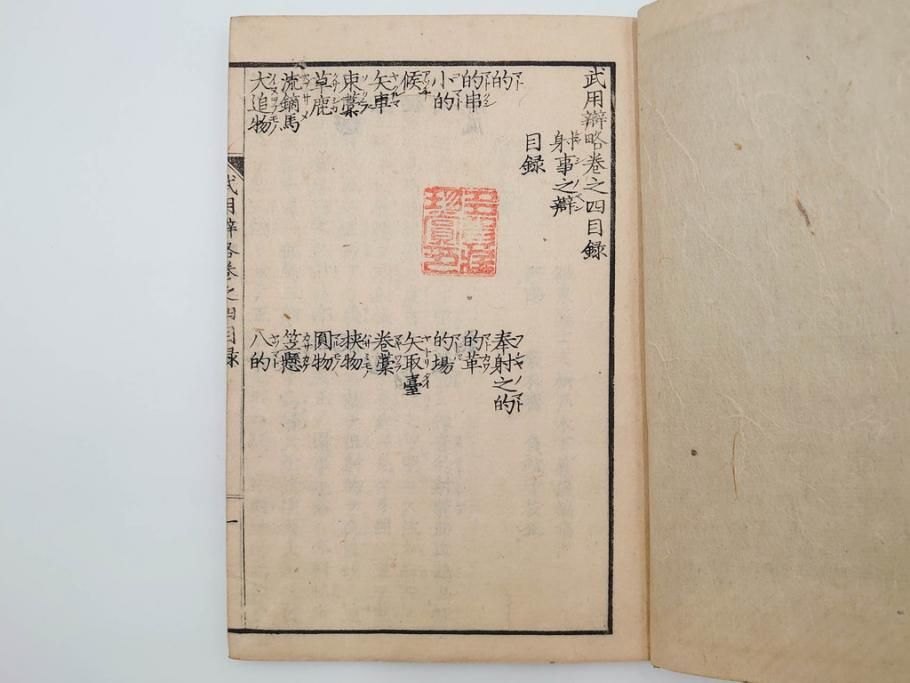 武用辯略卷之四目録
射事之辯
目録
的 奉射之的
的串 的革
小的 的場
候 矢取臺
矢車 卷藁
束藁 挟物
草鹿 圓物
流鏑馬 笠懸
犬追物 八的
武用辯略卷之四目録 一